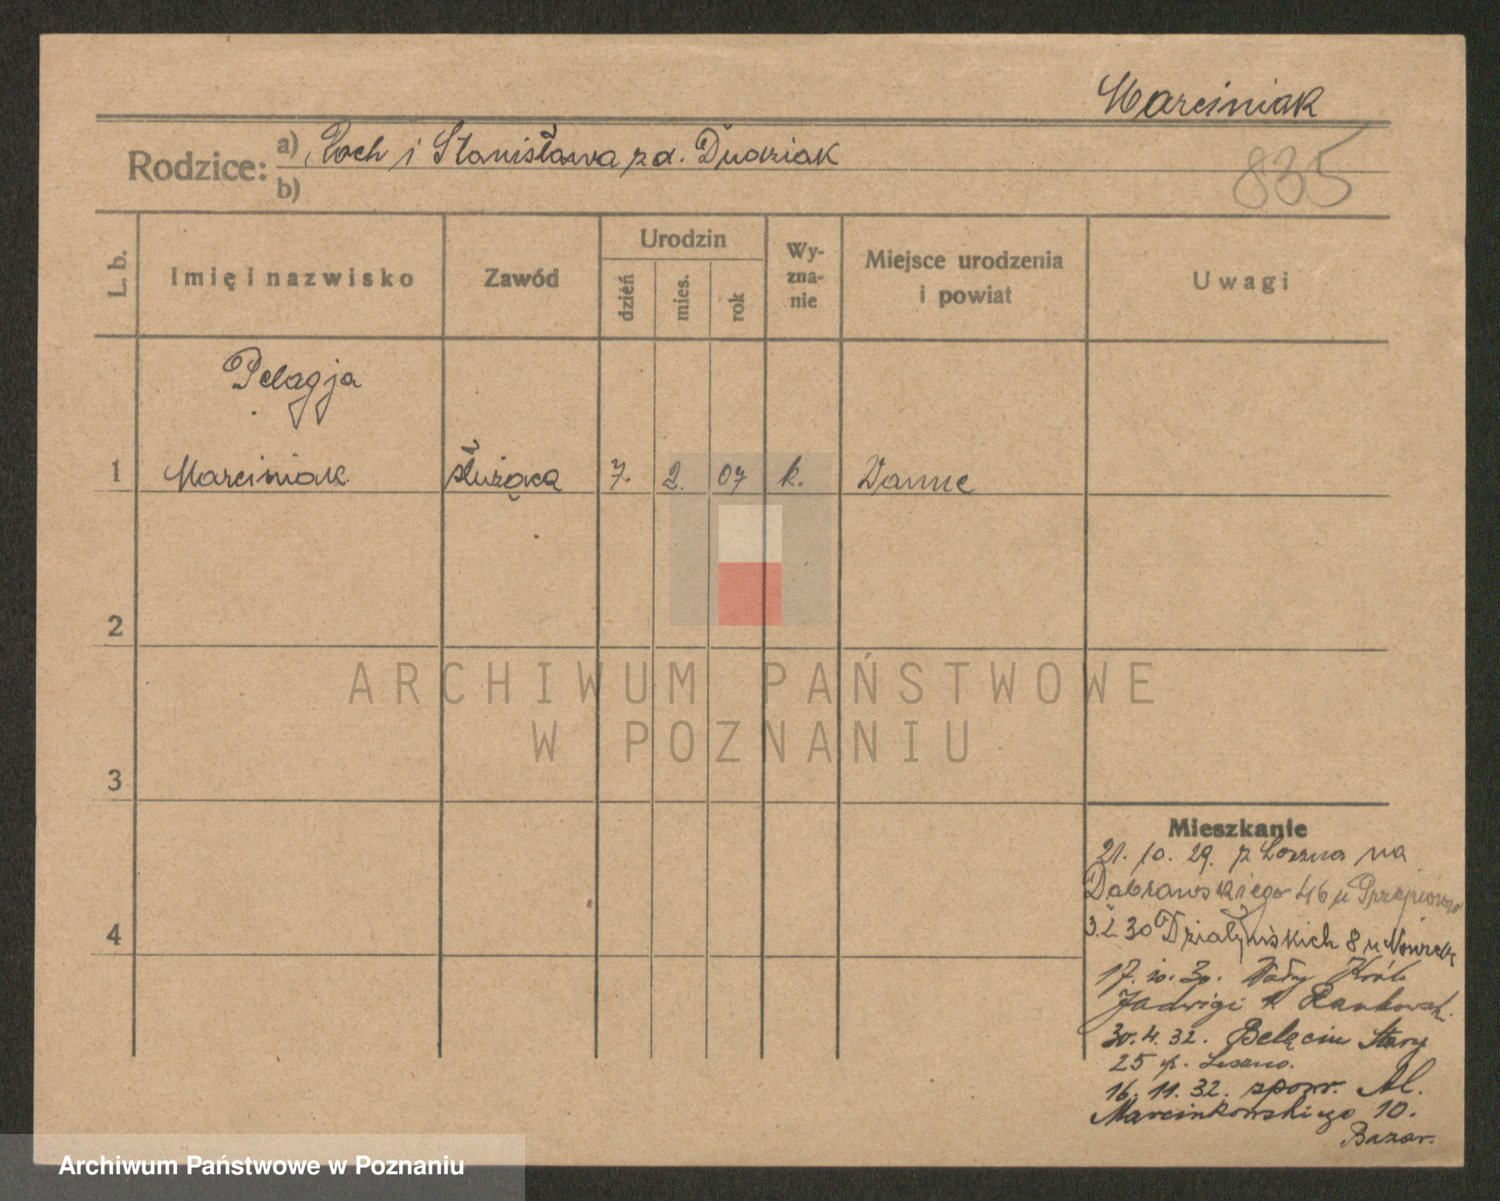 Marciniak
Rodzice: a) Roch i Stanisława zd. Dudziak
b)
835
L. b.
Imię i nazwisko
Zawód
Urodzin
dzień
mies.
rok
Wy-
zna-
nie
Miejsce urodzenia
i powiat
Uwagi
Pelagja
1 Marciniak służąca 7. 2. 07 k.
2
3
4
ARCHIWUM PAŃSTWOWE
W POZNANIU
Mieszkanie
21. 10. 29. z Leszna na
Dąbrowskiego 46 u
3.2.30 Działyńskich 8 u
17. 10. 30. Wały Król.
Jadwigi
30. 4. 32. Belęcin Stary
25 p. Leszno.
16. 11. 32. spowr. Al.
Marcinkowskiego 10.
Bazar.
Archiwum Państwowe w Poznaniu